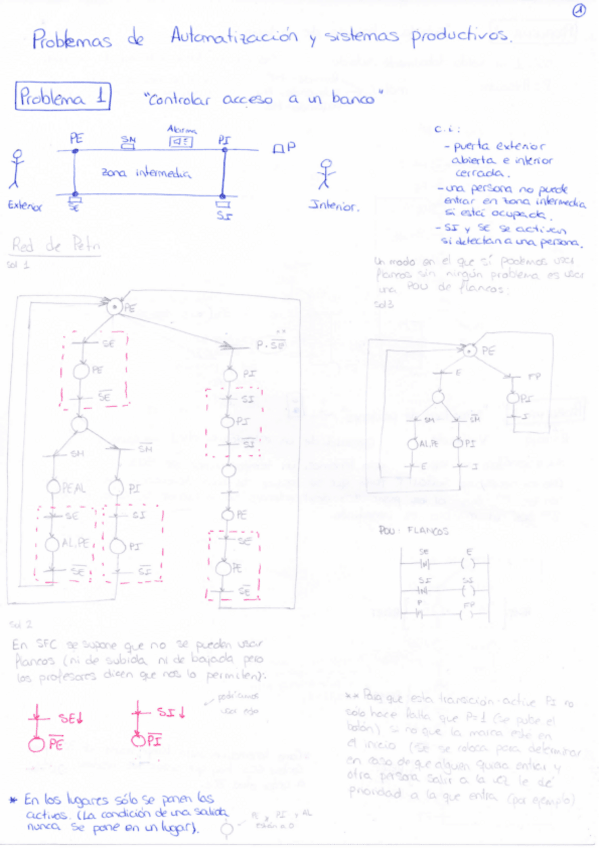 1
Problemas de Automatización y sistemas productivos.
Problema 1 "Controlar acceso a un banco"
PE SM Alarma PI P
zona intermedia
Exterior SE SI Interior.
C.i:
- puerta exterior
abierta e interior
cerrada.
- una persona no puede
entrar en zona intermedia
si está ocupada.
- SI y SE se activan
si detectan a una persona.
Red de Petri
Sol 1
Un modo en el que sí podemos usar
flancos sin ningún problema es usar
una POU de flancos:
Sol 3
PE
SE
PE
SE
SM
SM
PEAL
PI
SE
SI
AL.PE
PI
SE
SI
**
P·SE
PI
SI
PI
SI
PE
SE
PE
SE
PE
E
FP
PI
I
SM
SM
AL.PE
PI
E
I
POU: FLANCOS
SE E
SI
P FP
Sol 2
En SFC se supone que no se pueden usar
flancos (ni de subida ni de bajada pero
los profesores dicen que nos lo permiten):
SE↓
PE
SI↓
PI
podríamos
usar
* En los lugares sólo se ponen las
activos. (La condición de una salida
nunca se pone en un lugar).
** que esta transición active PI no
solo hace falta que P=1 (se pulse el
botón) si no que la marca esté en
el inicio (SE se coloca para determinar
en caso de que alguien quiera entrar y
otra persona salir a la vez le dé
prioridad a la que entra (por ejemplo)